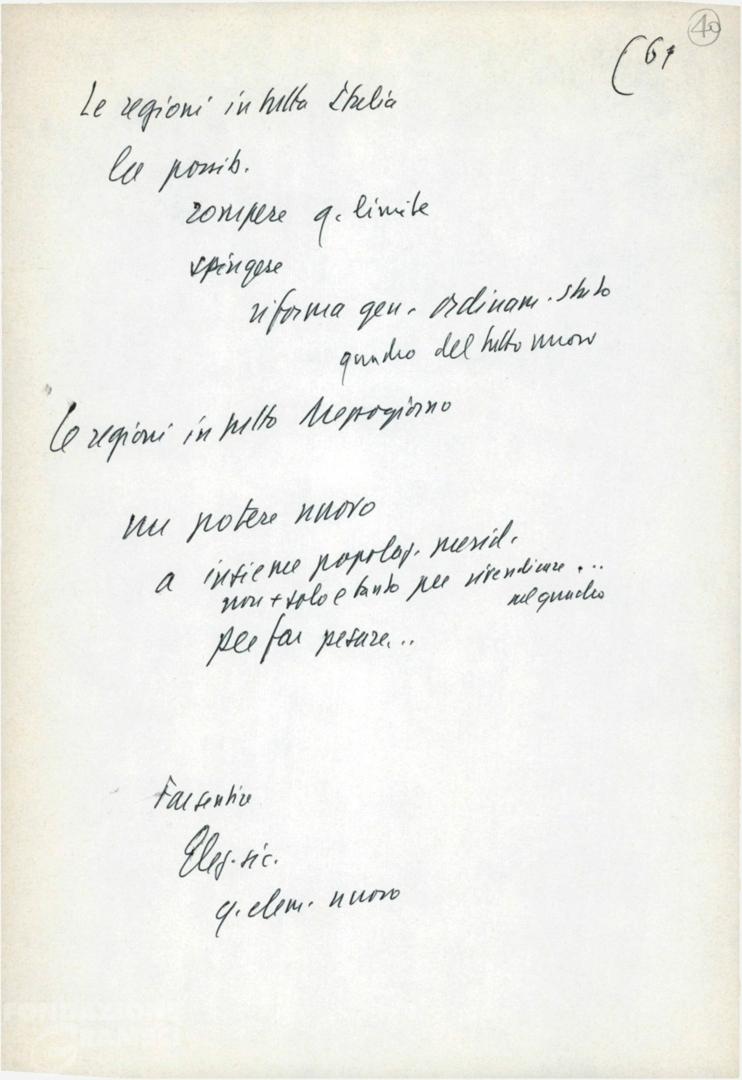 40
(61
Le regioni in tutta Italia
la possib.
rompere q. limite
spingere
riforma gen. ordinam. stato
quadro del tutto nuovo
Le regioni in tutto Mezzogiorno
un potere nuovo
a insieme popolaz. merid.
non + solo e tanto per rivendicare ...
nel quadro
per far pesare...
Far sentire
Elez. sic.
q. elem. nuovo
FONDAZIONE
GRAMSCI